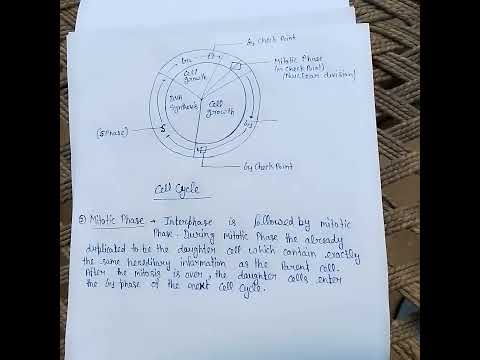 G2 Check Point
Mitotic Phase
(M Check Point)
(Nuclear division)
G2
Cell
growth
DNA
Synthesis
Cell
growth
(S Phase)
S
G1
G1 Check Point
Cell Cycle
5) Mitotic Phase → Interphase is followed by mitotic
Phase. During Mitotic Phase the already
duplicated to be the daughter cell which contain exactly
the same hereditary information as the Parent cell.
After the mitosis is over, the daughter cells enter
the G1 phase of the next Cell Cycle.